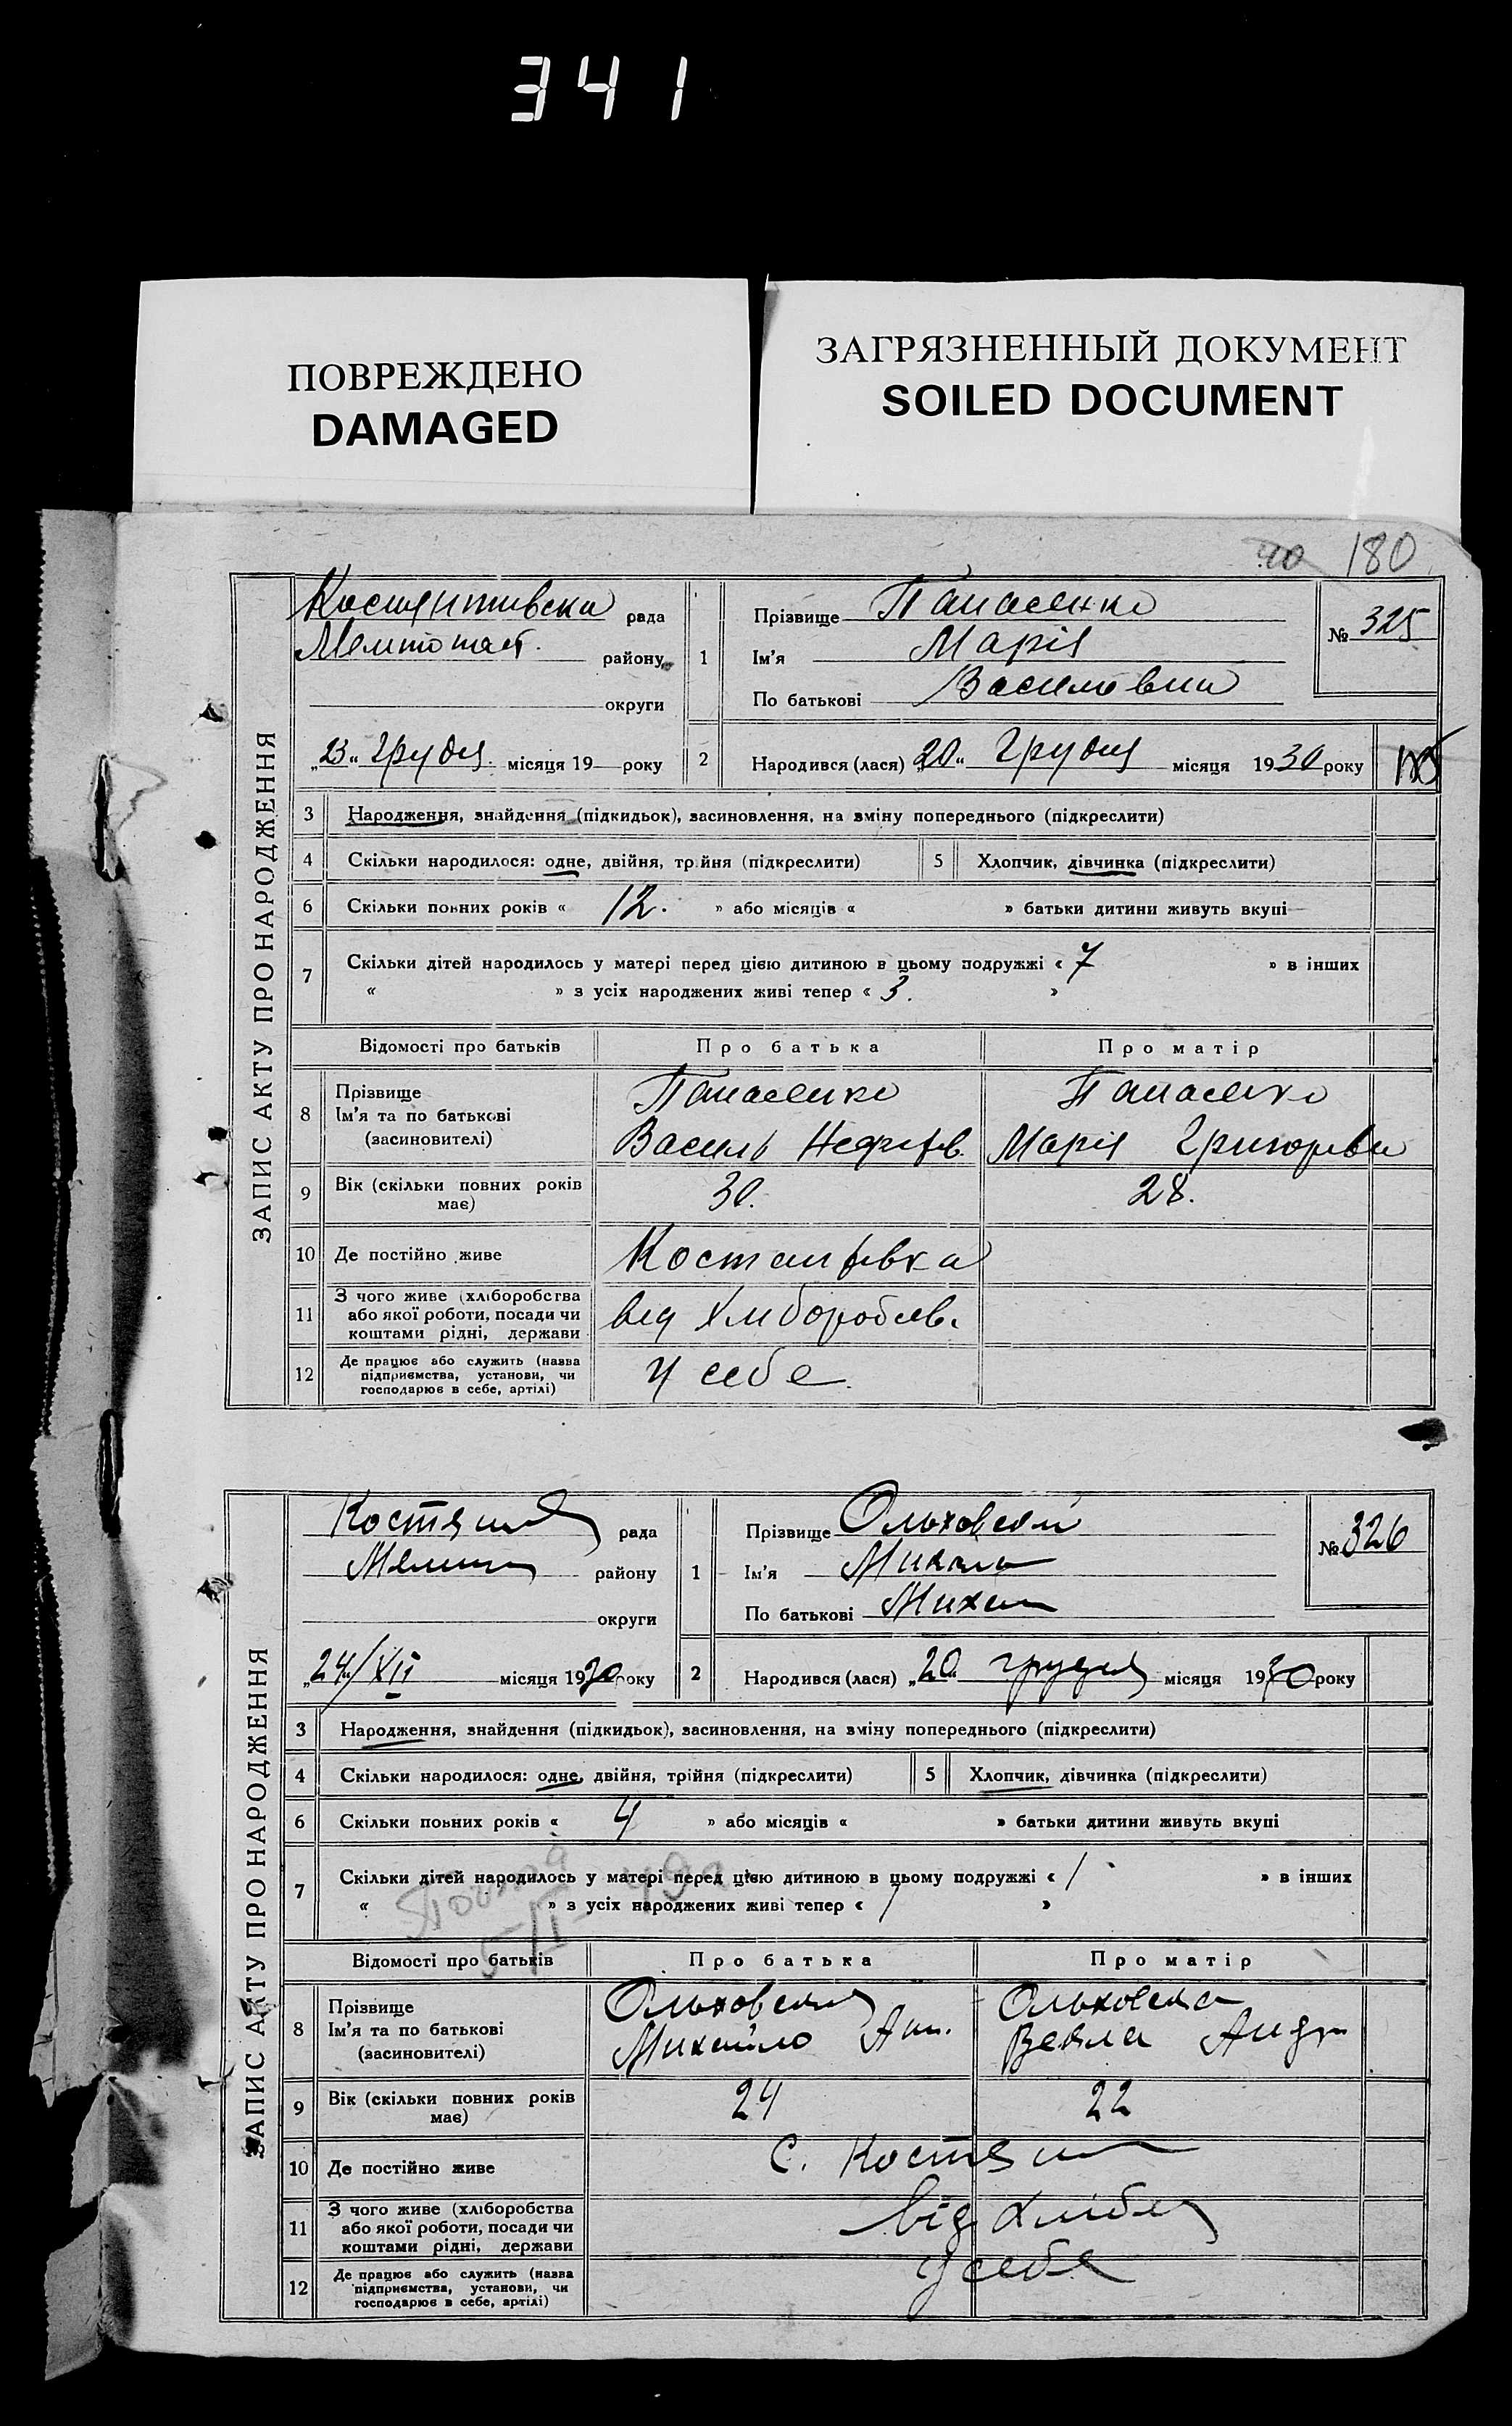 341
ПОВРЕЖДЕНО
DAMAGED
ЗАГРЯЗНЕННЫЙ ДОКУМЕНТ
SOILED DOCUMENT
180
ЗАПИС АКТУ ПРО НАРОДЖЕННЯ
рада
району
округи
„23“ Грудня місяця 19 року
1
Прізвище Панасенко
Ім'я Марія
По батькові
№ 325
2
Народився (лася) „20“ Грудня місяця 1930 року
3 Народження, знайдення (підкидьок), засиновлення, на зміну попереднього (підкреслити)
4 Скільки народилося: одне, двійня, трійня (підкреслити)
5 Хлопчик, дівчинка (підкреслити)
6 Скільки повних років « 12. » або місяців « » батьки дитини живуть вкупі
7 Скільки дітей народилось у матері перед цією дитиною в цьому подружжі « 7 » в інших
« » з усіх народжених живі тепер « 3. »
Відомості про батьків Про батька Про матір
8 Прізвище Ім'я та по батькові (засиновителі)
Панасенко Панасенко
Василь Марія
9 Вік (скільки повних років має) 30. 28.
10 Де постійно живе
11 З чого живе (хліборобства або якої роботи, посади чи коштами рідні, держави
від
12 Де працює або служить (назва підприємства, установи, чи господарює в себе, артілі)
У себе
ЗАПИС АКТУ ПРО НАРОДЖЕННЯ
рада
району
округи
„24“/XII місяця 1930 року
1
Прізвище Ольховский
Ім'я
По батькові
№ 326
2
Народився (лася) „20“ грудня місяця 1930 року
3 Народження, знайдення (підкидьок), засиновлення, на зміну попереднього (підкреслити)
4 Скільки народилося: одне, двійня, трійня (підкреслити)
5 Хлопчик, дівчинка (підкреслити)
6 Скільки повних років « 4 » або місяців « » батьки дитини живуть вкупі
7 Скільки дітей народилось у матері перед цією дитиною в цьому подружжі « 1 » в інших
« » з усіх народжених живі тепер « 1 »
Відомості про батьків Про батька Про матір
8 Прізвище Ім'я та по батькові (засиновителі)
Ольховська
Михайло
9 Вік (скільки повних років має) 24 22
10 Де постійно живе
с.
11 З чого живе (хліборобства або якої роботи, посади чи коштами рідні, держави
від
12 Де працює або служить (назва підприємства, установи, чи господарює в себе, артілі)
у себе